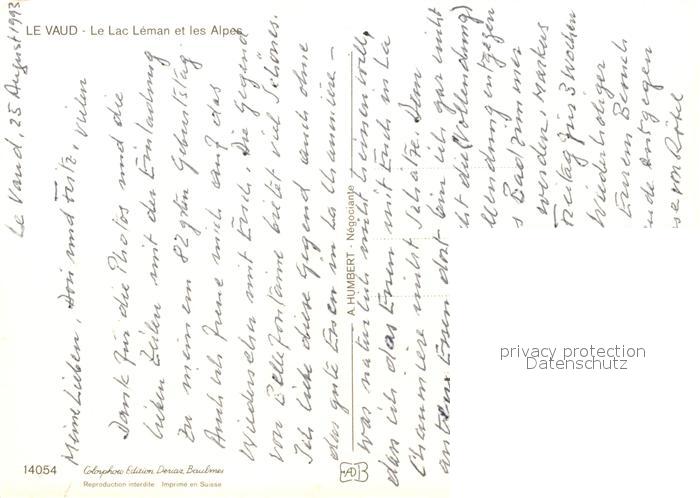 LE VAUD - Le Lac Léman et les Alpes
Le Vaud, 25 August 1993
Meine Lieben, Dori und Fritz, vielen
Dank für die Photos und die
lieben Zeilen mit der Einladung
zu meinem 82gsten Geburtstag.
Auch ich freue mich auf das
Wiedersehn mit Euch. Die Gegend
von Bellefontaine bietet viel Schönes.
Ich liebe diese Gegend auch ohne
das gute Essen in La Chaumière -
was natürlich nicht heissen soll,
dass ich das Essen mit Euch in La
Chaumière nicht schätze. Dem
Essen dort bin ich gar nicht
ht die (Vollendung)
llendung entgegen
s Badzimmer
werden. Markus
Freitag für 3 Wochen
Wiederholiger
Eurem Besuch
ude entgegen
A. HUMBERT - Négociante
14054
Colorphoto Edition Deriaz, Baulmes
Reproduction interdite Imprimé en Suisse
privacy protection
Datenschutz